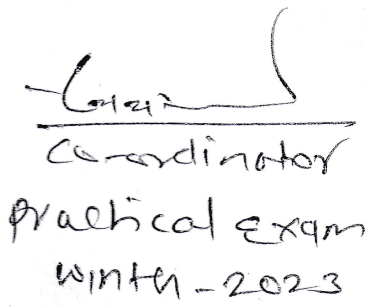 Co-ordinator
Practical Exam
Winter-2023